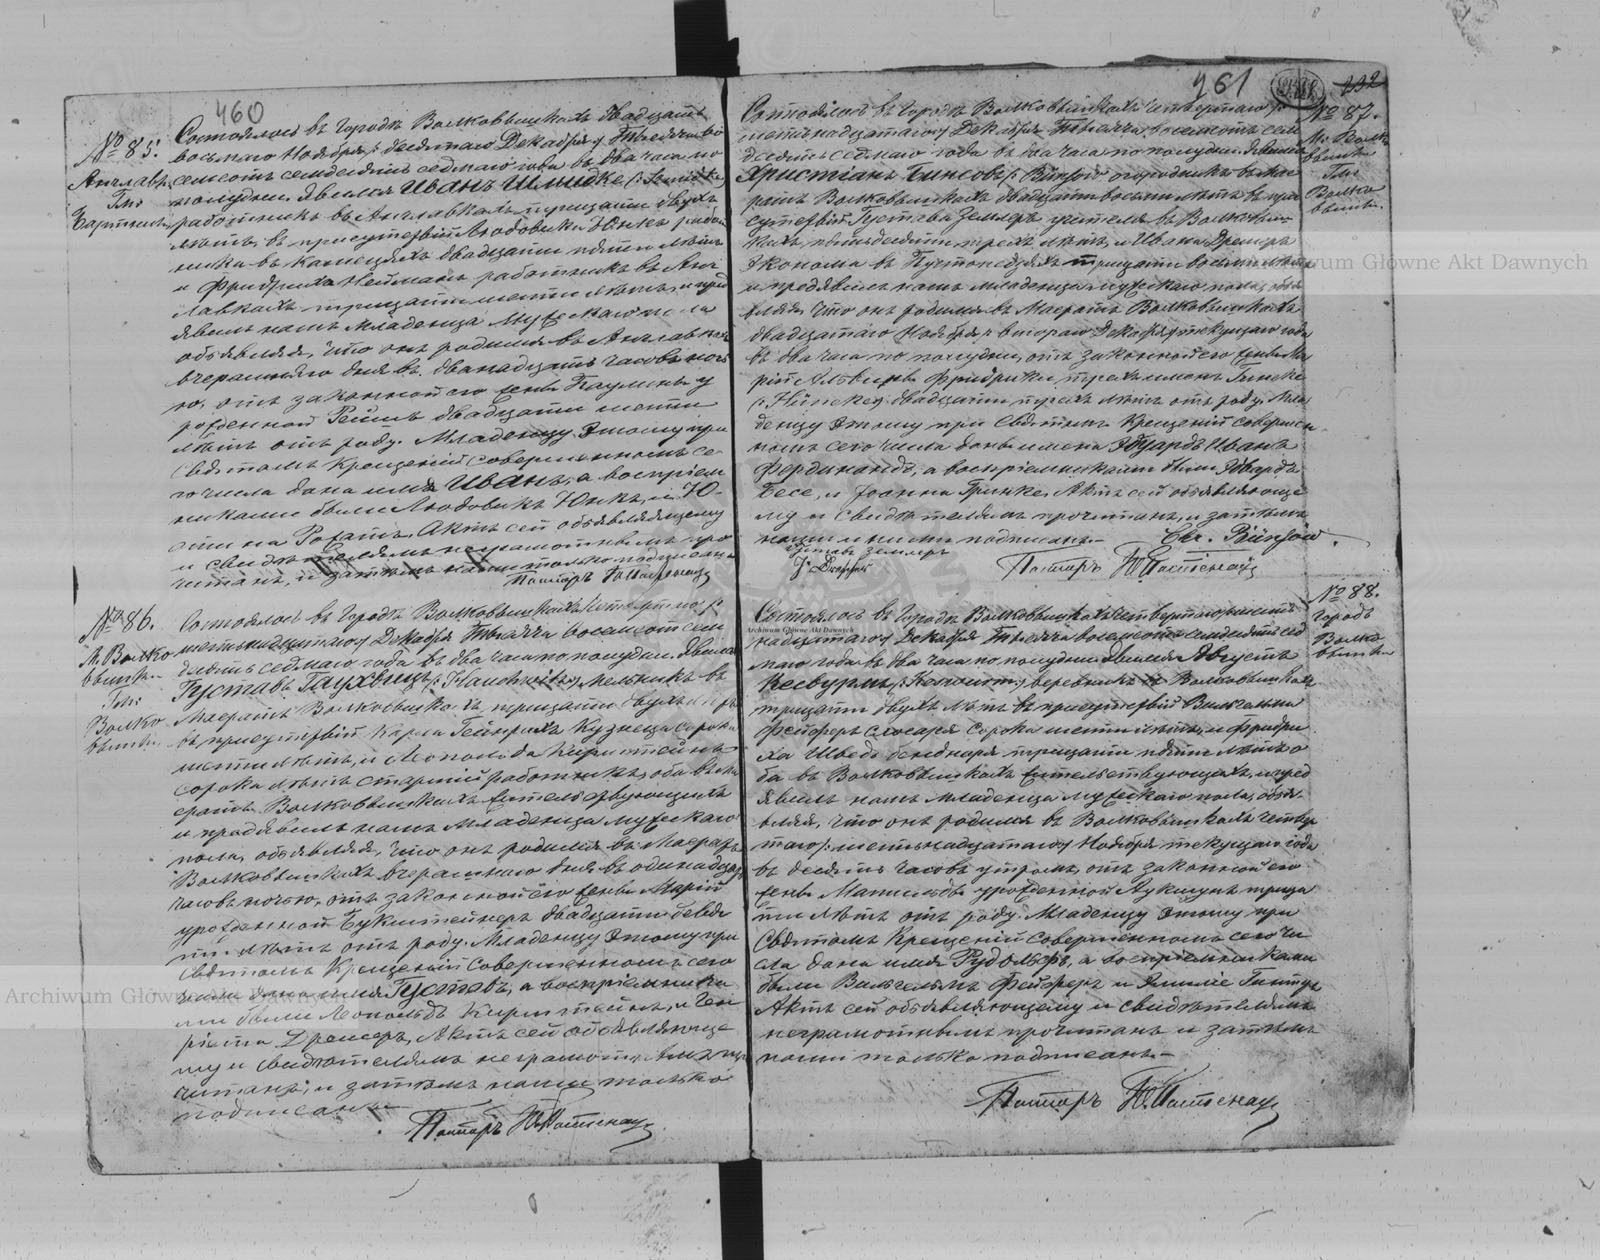 460
№ 85.
Англавк.
Гм:
Бартник
Состоялось въ городѣ Волковышкахъ двадцать
восьмаго Ноября /: десятаго Декабря :/ тысяча во
семьсотъ семдесятъ седмаго года въ два часа по
полудни. Явился Иванъ Шмидке /: Szmidke :/
работникъ въ Англавкахъ тридцати двухъ
лѣтъ, въ присутствіи Людовика Юнкъ работ
ника въ двадцати пяти лѣтъ
и Фридриха Нейманъ работникъ въ Анг
лавкахъ тридцати шести лѣтъ и пред
явилъ намъ Младенца Мужескаго пола
объявляя, что онъ родился въ Англавкахъ
вчерашняго дня въ двенадцать часовъ ночь
ю, отъ законной его жены Паулины у
рожденной двадцати шести
лѣтъ отъ роду. Младенцу этому при
Святомъ Крещеніи совершенномъ се
го числа дано имя Иванъ, а воспріем
никами были Людовикъ Юнкъ, и Ю
стина Актъ сей объявляющему
и свидѣтелямъ неграмотнымъ про
читанъ, и затѣмъ нами только подписанъ
Пасторъ Ю. Пастенаци
№ 86.
М. Волко
вышки
Гм:
Волко
вышки
Состоялось въ городѣ Волковышкахъ четвертаго /:
шестнадцатаго :/ Декабря тысяча восемсотъ сем
десятъ седмаго года въ два часа по полудни. Явился
Густавъ Гаухвицъ /: Hauchwitz :/ Мельникъ въ
Маератѣ Волковышкахъ тридцати двухъ лѣтъ
въ присутствіи Карла Гейнрихъ Кузнеца сорока
шести лѣтъ, и Леопольда Кирштейнъ
сорока лѣтъ старшій работникъ, оба въ Ма
ератѣ Волковышкахъ жительствующихъ
и предявилъ намъ Младенца мужескаго
пола, объявляя, что онъ родился въ Маератѣ
Волковышкахъ вчерашняго дня въ одинадцать
часовъ ночью, отъ законной его жены Маріи
урожденной Букштейнеръ двадцати девя
ти лѣтъ отъ роду. Младенцу этому при
Святомъ Крещеніи совершенномъ сего
числа дано имя Густавъ, а воспріемника
ми были Леопольдъ Кирштейнъ, и Ген
ріета Дремеръ. Актъ сей объявляюще
му и свидѣтелямъ неграмотнымъ про
читанъ, и затѣмъ нами только
подписанъ
Пасторъ Ю. Пастенаци
461
232
№ 87.
М. Волко
вышки
Гм:
Волко
вышки
Состоялось въ городѣ Волковышкахъ четвертаго /:
шестнадцатаго :/ Декабря тысяча восемсотъ сем
десятъ седмаго года въ два часа по полудни. Явился
Христіанъ Бинсовъ /: Bünsow :/ огородникъ въ Мае
ратѣ Волковышкахъ двадцати восьми лѣтъ въ при
сутствіи Густава Землеръ учителя въ Волковыш
кахъ, пятьдесяти трехъ лѣтъ, и Ивана Дремеръ
Эконома въ тридцати восьми лѣтъ
и предявилъ намъ Младенца мужескаго пола, объ
являя, что онъ родился въ Маератѣ Волковышкахъ
двадцатаго Ноября /: втораго Декабря :/ текущаго года
въ два часа по полудни, отъ законной его жены Ма
ріи Альвины Фридрики трехъ именъ Гинске
/: Hünske :/ двадцати трехъ лѣтъ отъ роду. Мла
денцу этому при Святомъ Крещеніи совершен
номъ сего числа даны имена Эдуардъ Иванъ
Фердинандъ, а воспріемниками были Эдвардъ
Бесе, и Іоанна Гринке. Актъ сей объявляюще
му и свидѣтелямъ прочитанъ, и затѣмъ
нами и ними подписанъ.
Chr. Bünsow.
Густавъ Землеръ
J. Dremer
Пасторъ Ю. Пастенаци
№ 88.
Городъ
Волко
вышки
Состоялось въ городѣ Волковышкахъ четвертаго /: шест
надцатаго :/ Декабря тысяча восемсотъ семдесятъ сед
маго года въ два часа по полудни. Явился Августъ
Кесвурмъ /: Keswurm :/ веревникъ въ Волковышкахъ
тридцати двухъ лѣтъ въ присутствіи Вильгельма
Фейферъ слесаря сорока шести лѣтъ, и Фридри
ха Шведъ бенднаря тридцати пяти лѣтъ о
ба въ Волковышкахъ жительствующихъ, и пред
явилъ намъ младенца мужескаго пола, объя
вляя, что онъ родился въ Волковышкахъ четвер
таго /: шестнадцатаго :/ Ноября текущаго года
въ десять часовъ утромъ, отъ законной его
жены Матильды урожденной тридца
ти лѣтъ отъ роду. Младенцу этому при
Святомъ Крещеніи совершенномъ сего чи
сла дано имя Рудольфъ, а воспріемниками
были Вильгельмъ Фейферъ и Эмилія
Актъ сей объявляющему и свидѣтелямъ
неграмотнымъ прочитанъ и затѣмъ
нами только подписанъ.
Пасторъ Ю. Пастенаци
Archiwum Główne Akt Dawnych
Archiwum Główne Akt Dawnych
Archiwum Główne Akt Dawnych